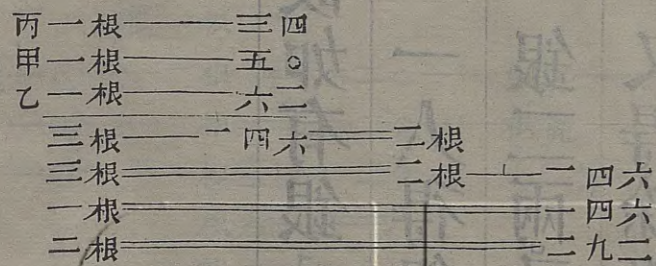 丙一根——三四
甲一根——五〇
乙一根——六二
三根——一四六══二根
三根══二根⊥一四六
一根══一四六
二根══二九二